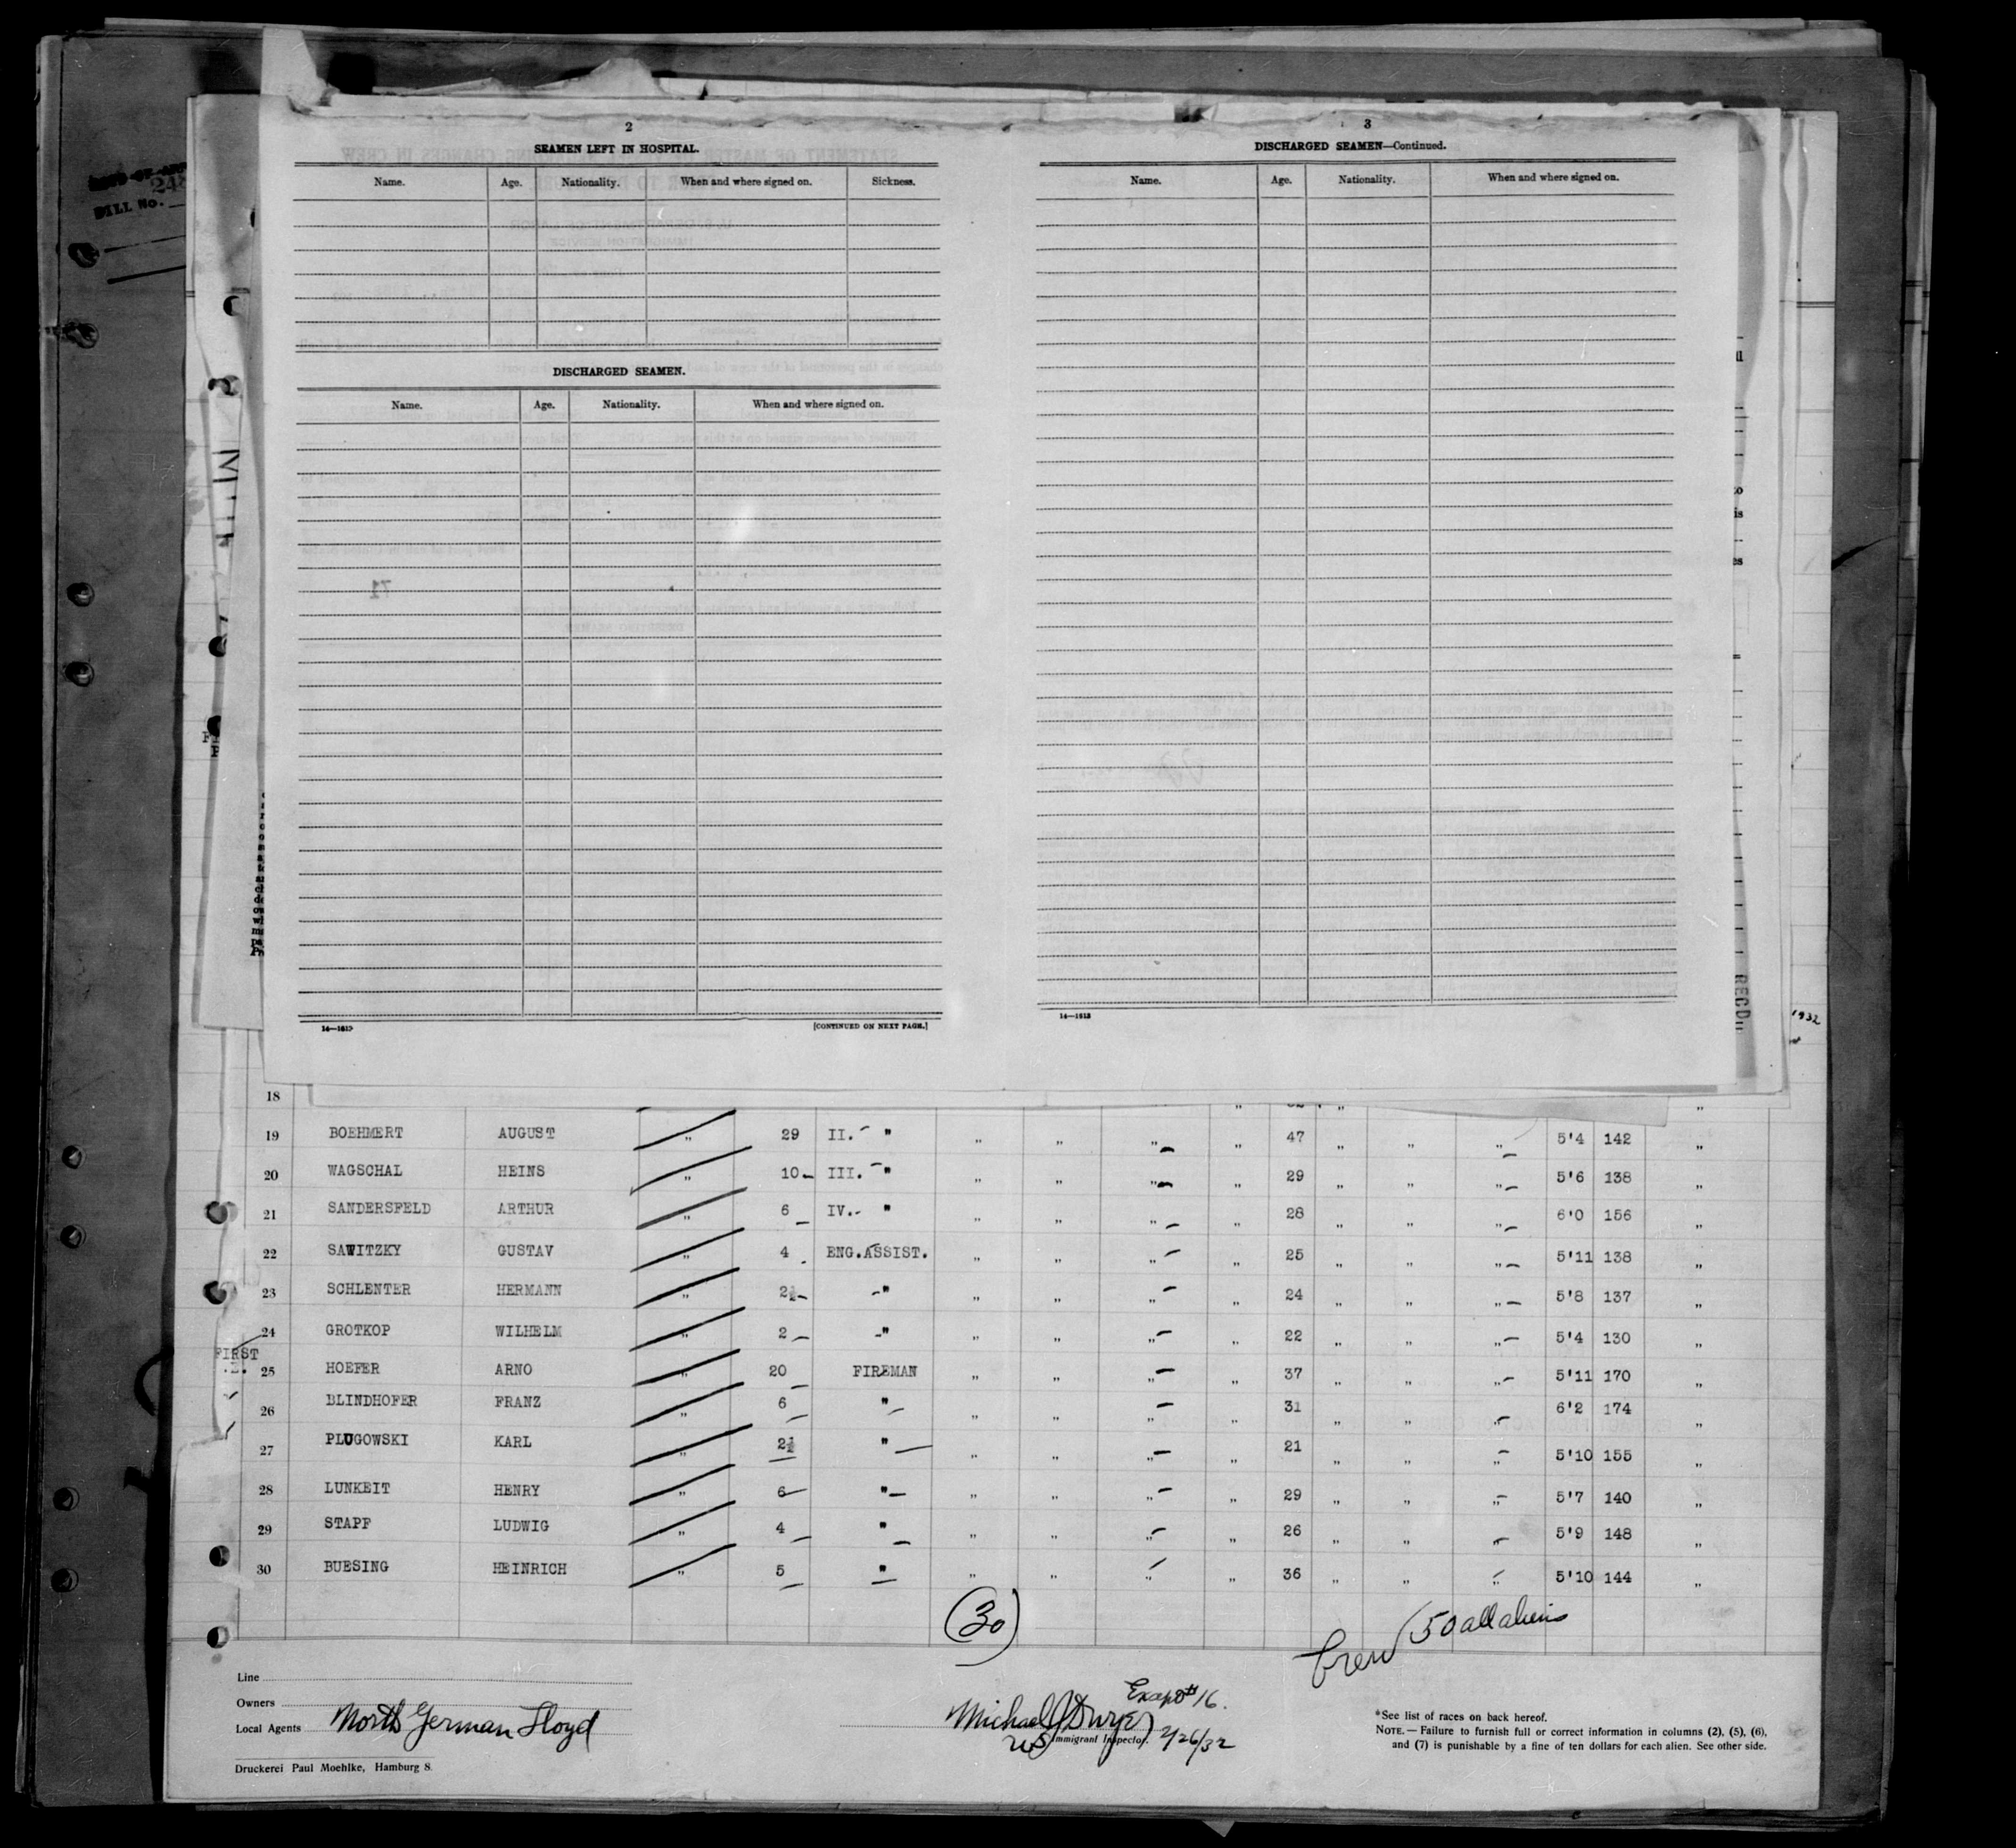 248
BILL No.
2
SEAMEN LEFT IN HOSPITAL.
Name. Age. Nationality. When and where signed on. Sickness.
DISCHARGED SEAMEN.
Name. Age. Nationality. When and where signed on.
71
14—1613 [CONTINUED ON NEXT PAGE.]
3
DISCHARGED SEAMEN—Continued.
Name. Age. Nationality. When and where signed on.
14—1613
REC'D
1932
18 „ „ „
19 BOEHMERT AUGUST „ 29 II. " „ „ „ „ 47 „ „ „ 5'4 142 „
20 WAGSCHAL HEINS „ 10 III. " „ „ „ „ 29 „ „ „ 5'6 138 „
21 SANDERSFELD ARTHUR „ 6 IV. " „ „ „ „ 28 „ „ „ 6'0 156 „
22 SAWITZKY GUSTAV „ 4 ENG.ASSIST. „ „ „ „ 25 „ „ „ 5'11 138 „
23 SCHLENTER HERMANN „ 2½ " „ „ „ „ 24 „ „ „ 5'8 137 „
24 GROTKOP WILHELM „ 2 " „ „ „ „ 22 „ „ „ 5'4 130 „
FIRST
25 HOEFER ARNO „ 20 FIREMAN „ „ „ „ 37 „ „ „ 5'11 170 „
26 BLINDHOFER FRANZ „ 6 " „ „ „ „ 31 „ „ „ 6'2 174 „
27 PLUGOWSKI KARL „ 2½ " „ „ „ „ 21 „ „ „ 5'10 155 „
28 LUNKEIT HENRY „ 6 " „ „ „ „ 29 „ „ „ 5'7 140 „
29 STAPF LUDWIG „ 4 " „ „ „ „ 26 „ „ „ 5'9 148 „
30 BUESING HEINRICH „ 5 " „ „ „ „ 36 „ „ „ 5'10 144 „
(30)
Crew (50 all aliens
Line
Owners
Local Agents North German Lloyd
Druckerei Paul Moehlke, Hamburg 8.
#16.
Michael J Dwyer
US Immigrant Inspector. 2/26/32
*See list of races on back hereof.
NOTE.—Failure to furnish full or correct information in columns (2), (5), (6),
and (7) is punishable by a fine of ten dollars for each alien. See other side.